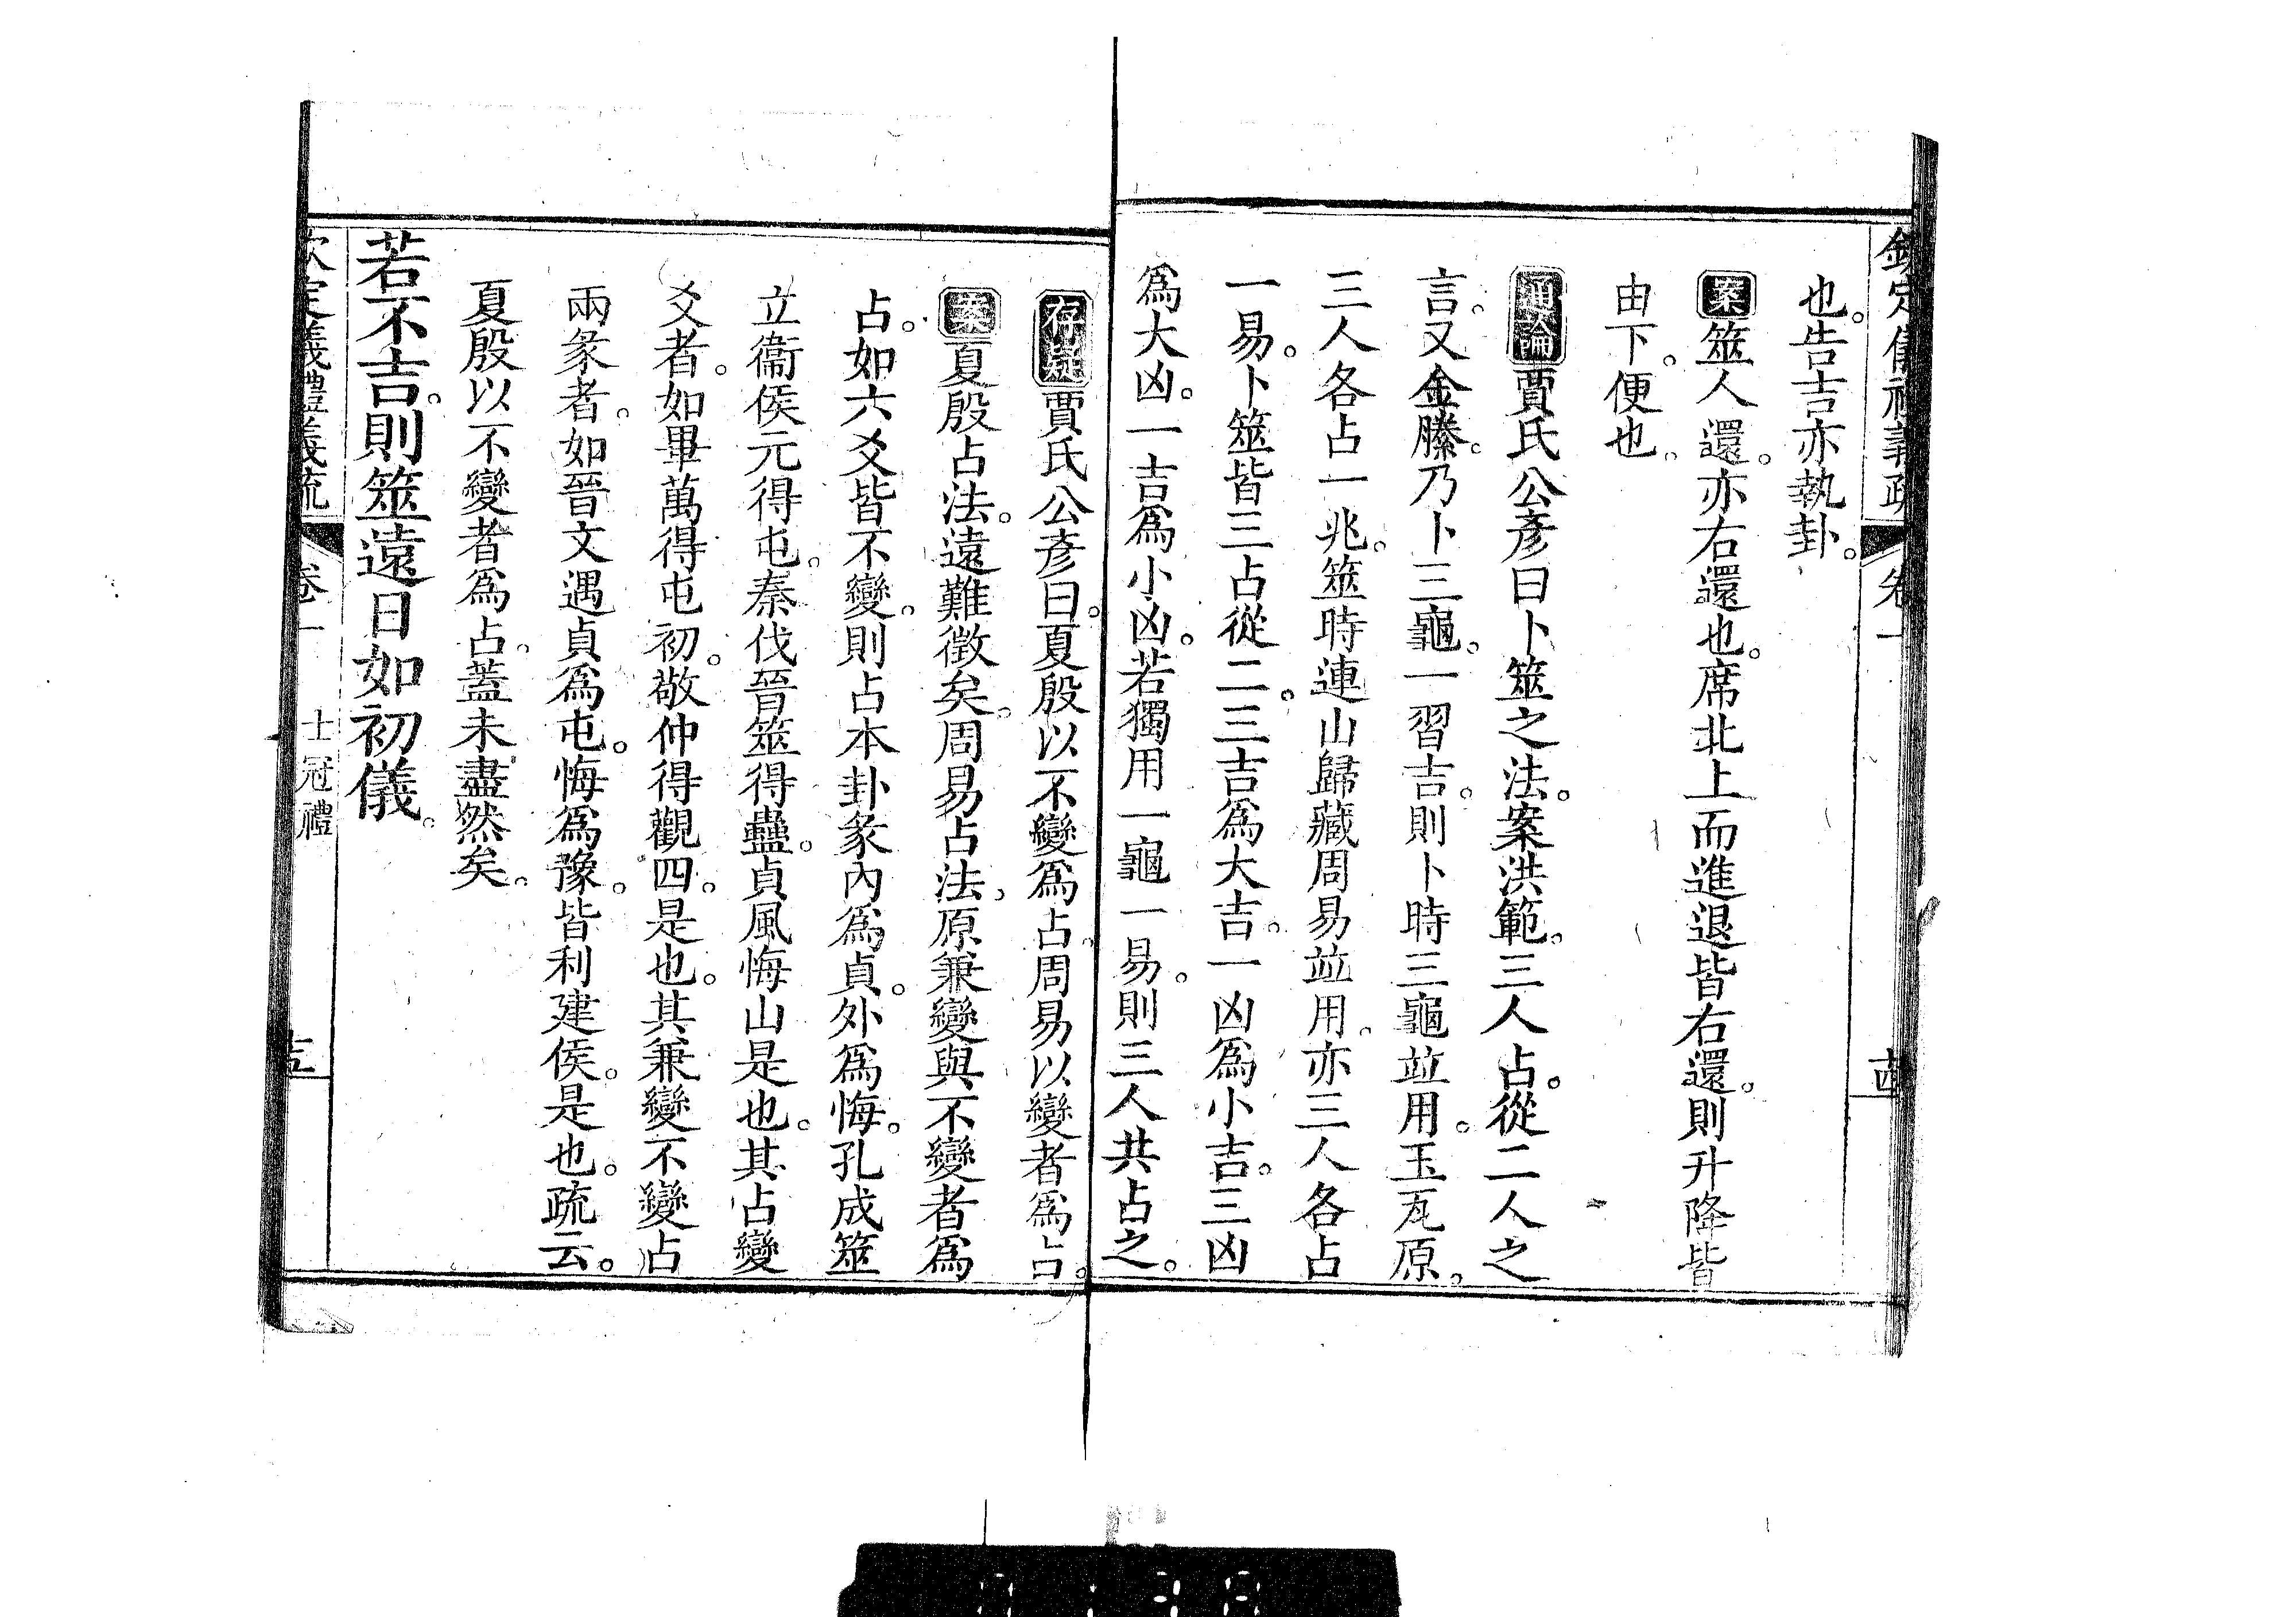 欽定儀禮義疏 卷一 十四
也。告吉亦執卦。
案筮人還。亦右還也。席北上而進退皆右還。則升降皆
由下。便也。
通論賈氏公彥曰卜筮之法。案洪範。三人占。從二人之
言。又金縢。乃卜三龜。一習吉。則卜時三龜竝用。玉瓦原。
三人各占一兆。筮時連山歸藏周易竝用。亦三人各占
一易。卜筮皆三占從二。三吉爲大吉。一凶爲小吉。三凶
爲大凶。一吉爲小凶。若獨用一龜一易。則三人共占之。
存疑賈氏公彥曰。夏殷以不變爲占。周易以變者爲占。
案夏殷占法。遠難徵矣。周易占法。原兼變與不變者爲
占。如六爻皆不變。則占本卦彖內爲貞。外爲悔。孔成筮
立衞侯元得屯。秦伐晉筮得蠱。貞風悔山是也。其占變
爻者。如畢萬得屯初。敬仲得觀四。是也。其兼變不變占
兩彖者。如晉文遇貞爲屯。悔爲豫。皆利建侯。是也。疏云。
夏殷以不變者爲占。蓋未盡然矣。
若不吉。則筮遠日如初儀。
欽定儀禮義疏 卷一 士冠禮 十五